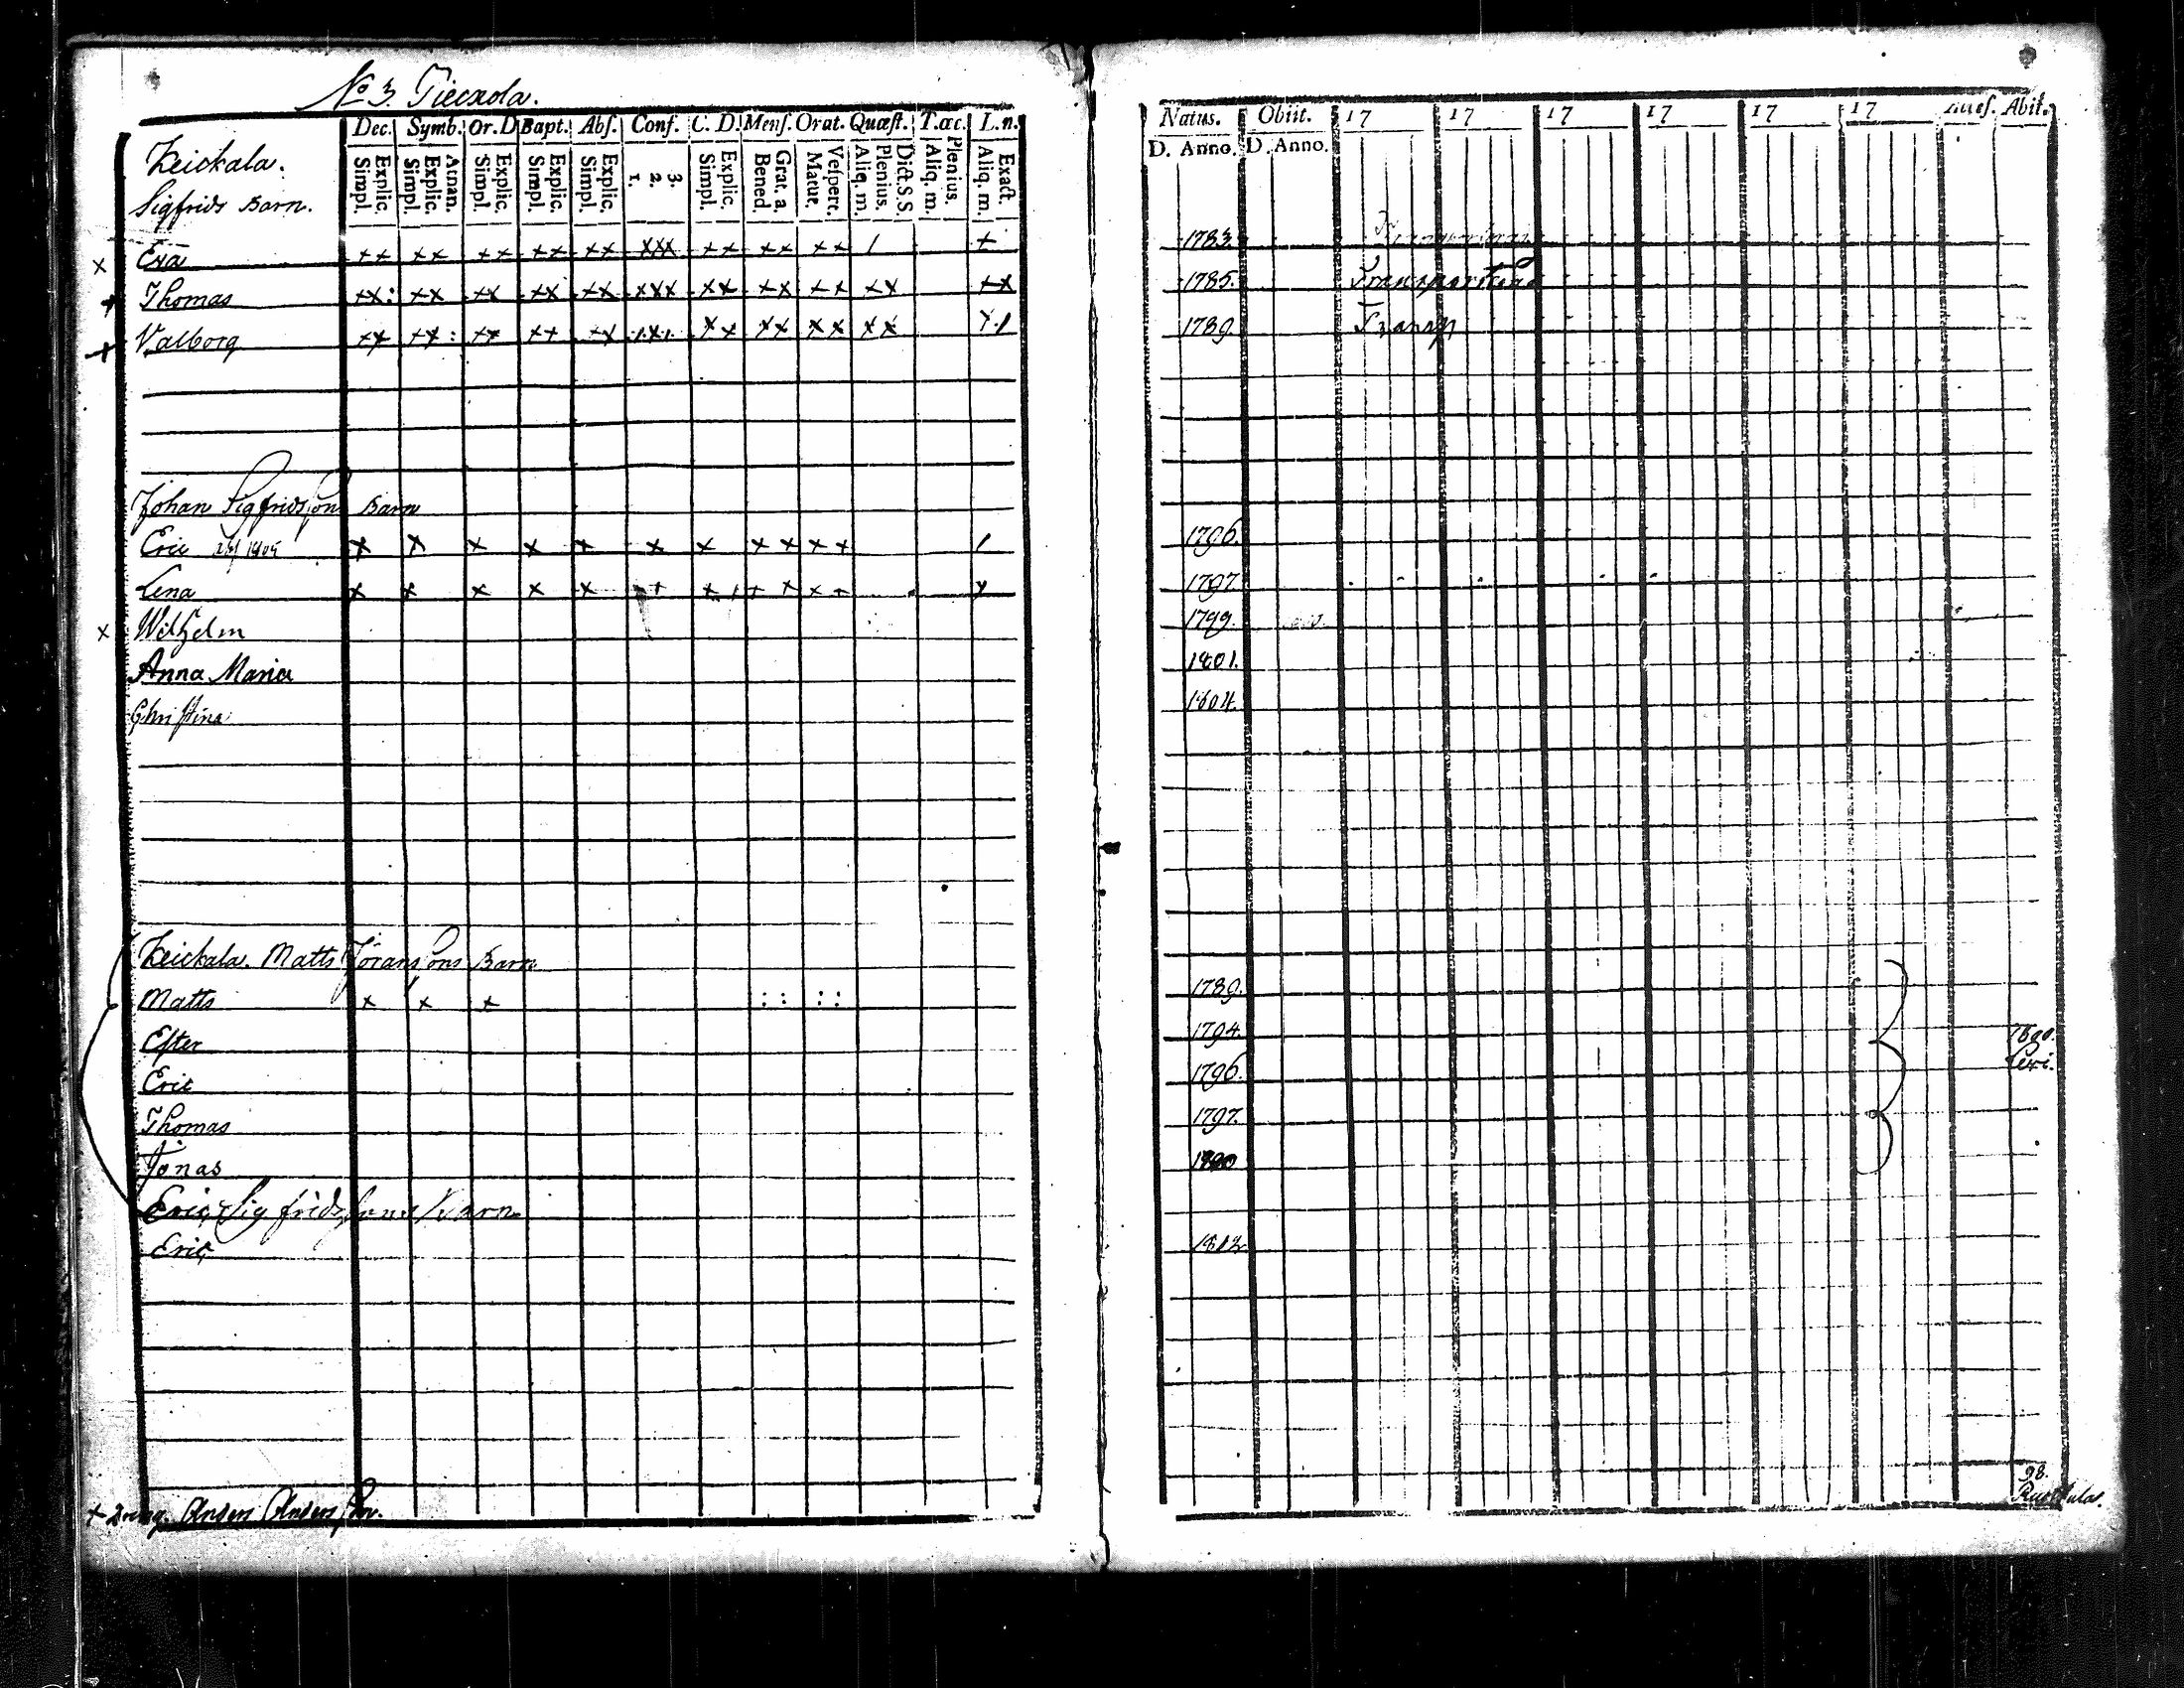 No 3. Tiecxola.
Dec. Symb. Or. D Bapt. Abs. Conf. C. D. Mens. Orat. Quæst. T.œc. L.n.
Explic. Simpl. Atnan. Explic. Simpl. Explic. Simpl. Explic. Simpl. Explic. Simpl. 3. 2. 1. Explic. Simpl. Grat. a. Bened. Vespere. Matut. Dict.S.S. Plenius. Aliq. m. Plenius. Aliq. m. Exact. Aliq. m.
Natus. Obiit. 17 17 17 17 17 17 Abit.
D. Anno. D. Anno.
Keickala.
Sigfrids Barn.
x Exa ++ ++ ++ ++ ++ xxx ++ ++ ++ / + 1783.
+ Thomas ++: ++ ++ ++ ++ xxx ++ ++ ++ ++ ++ 1785. Transporterad
+ Valborg ++ ++: ++ ++ ++ .x. xx xx xx xx 1789. Transp
Johan Sigfridsson Barn
Eric x x x x x x x x x x x / 1796.
Lena x x x x x + x + + x x + x 1797.
x Wilhelm 1799.
Anna Maria 1801.
Christina 1804.
Keickala. Matts Jöransons Barn
Matts x x x :: :: 1789.
Ester 1794. 1800.
Eric 1796.
Thomas 1797.
Jonas 1800
Eric Sigfridssons Barn
Eric 1812
+ Dräng. Anders Andersson.
98.